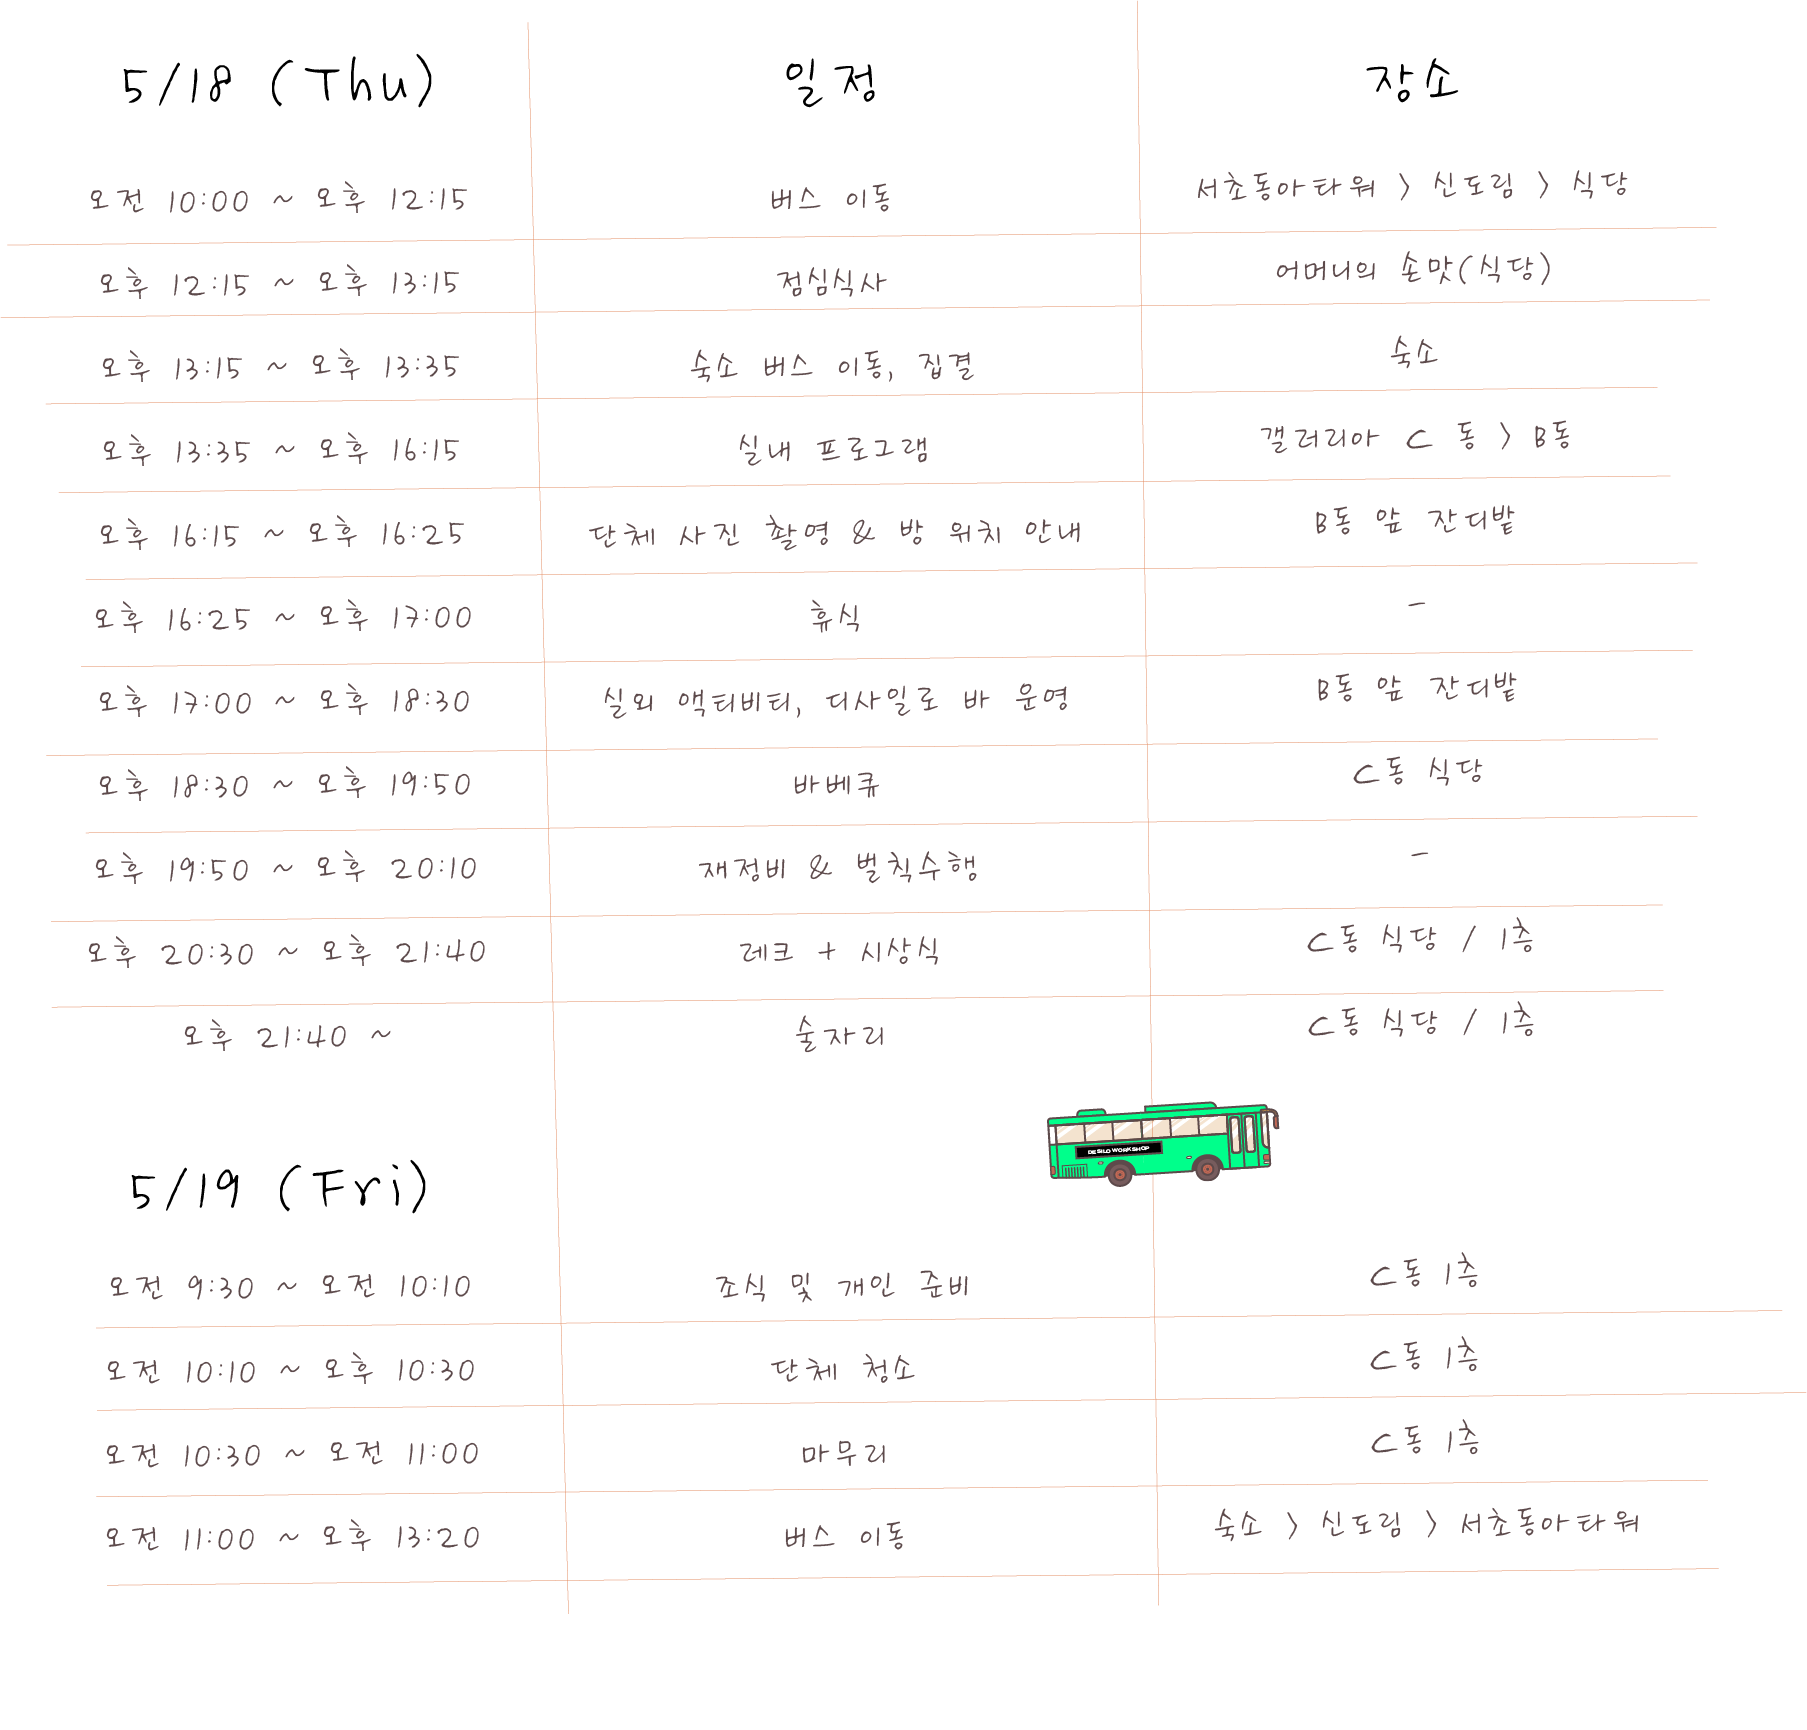 5/18 (Thu) 일정 장소
오전 10:00 ~ 오후 12:15 버스 이동 서초동아타워 > 신도림 > 식당
오후 12:15 ~ 오후 13:15 점심식사 어머니의 손맛(식당)
오후 13:15 ~ 오후 13:35 숙소 버스 이동, 집결 숙소
오후 13:35 ~ 오후 16:15 실내 프로그램 갤러리아 C 동 > B동
오후 16:15 ~ 오후 16:25 단체 사진 촬영 & 방 위치 안내 B동 앞 잔디밭
오후 16:25 ~ 오후 17:00 휴식 -
오후 17:00 ~ 오후 18:30 실외 액티비티, 디사일로 바 운영 B동 앞 잔디밭
오후 18:30 ~ 오후 19:50 바베큐 C동 식당
오후 19:50 ~ 오후 20:10 재정비 & 벌칙수행 -
오후 20:30 ~ 오후 21:40 레크 + 시상식 C동 식당 / 1층
오후 21:40 ~ 술자리 C동 식당 / 1층
DESILO WORKSHOP
5/19 (Fri)
오전 9:30 ~ 오전 10:10 조식 및 개인 준비 C동 1층
오전 10:10 ~ 오후 10:30 단체 청소 C동 1층
오전 10:30 ~ 오전 11:00 마무리 C동 1층
오전 11:00 ~ 오후 13:20 버스 이동 숙소 > 신도림 > 서초동아타워